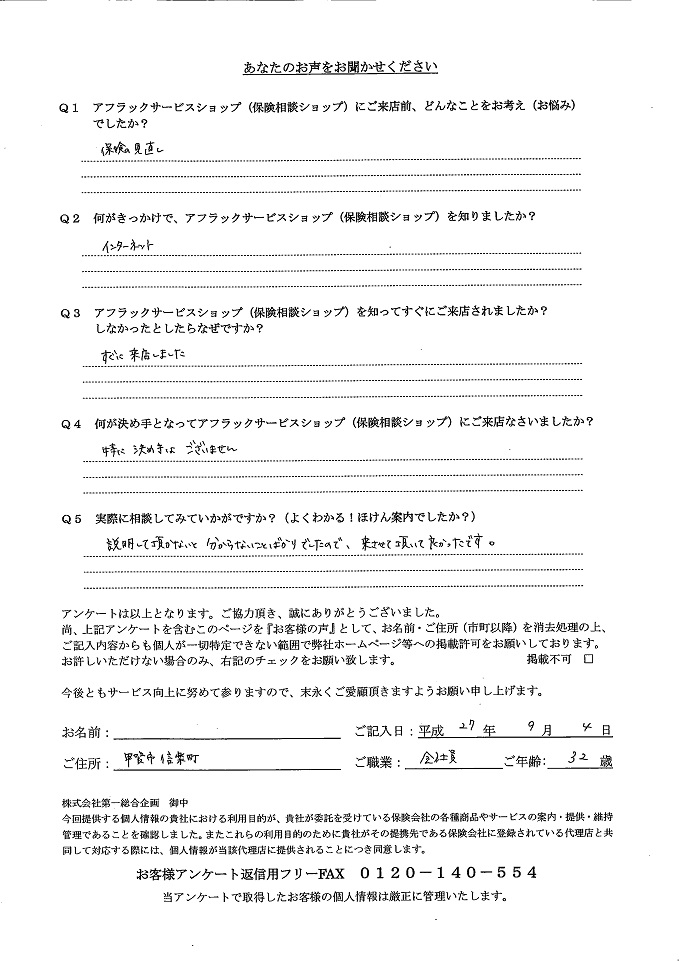 あなたのお声をお聞かせください
Q1 アフラックサービスショップ（保険相談ショップ）にご来店前、どんなことをお考え（お悩み）
でしたか？
保険の見直し
Q2 何がきっかけで、アフラックサービスショップ（保険相談ショップ）を知りましたか？
インターネット
Q3 アフラックサービスショップ（保険相談ショップ）を知ってすぐにご来店されましたか？
しなかったとしたらなぜですか？
すぐに来店しました
Q4 何が決め手となってアフラックサービスショップ（保険相談ショップ）にご来店なさいましたか？
特に決め手は ございません
Q5 実際に相談してみていかがですか？（よくわかる！ほけん案内でしたか？）
説明して頂かないと分からないことばかりでしたので、来させて頂いて良かったです。
アンケートは以上となります。ご協力頂き、誠にありがとうございました。
尚、上記アンケートを含むこのページを『お客様の声』として、お名前・ご住所（市町以降）を消去処理の上、
ご記入内容からも個人が一切特定できない範囲で弊社ホームページ等への掲載許可をお願いしております。
お許しいただけない場合のみ、右記のチェックをお願い致します。 掲載不可 □
今後ともサービス向上に努めて参りますので、末永くご愛顧頂きますようお願い申し上げます。
お名前： ご記入日：平成 27 年 9 月 4 日
ご住所： 甲斐市 ご職業： 会社員 ご年齢： 32 歳
株式会社第一総合企画 御中
今回提供する個人情報の貴社における利用目的が、貴社が委託を受けている保険会社の各種商品やサービスの案内・提供・維持
管理であることを確認しました。またこれらの利用目的のために貴社がその提携先である保険会社に登録されている代理店と共
同して対応する際には、個人情報が当該代理店に提供されることにつき同意します。
お客様アンケート返信用フリーFAX 0120-140-554
当アンケートで取得したお客様の個人情報は厳正に管理いたします。